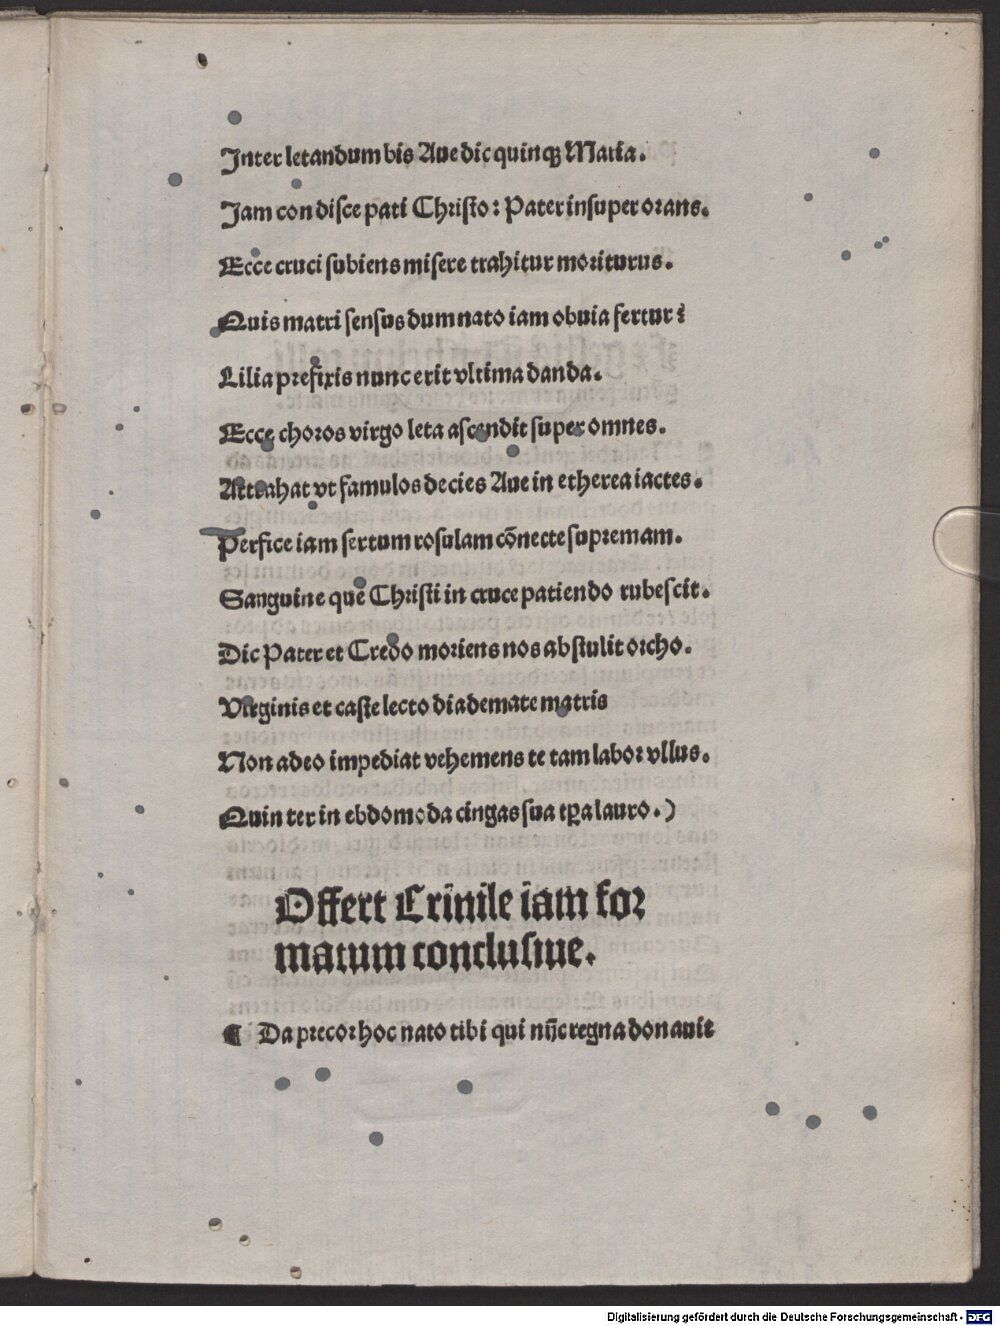 Inter letandum bis Aue dic quinqꝫ Maria.
Jam con disce pati Christo: Pater insuper orans.
Ecce cruci subiens misere trahitur moriturus.
Quis matri sensus dum nato iam obuia fertur?
Lilia prefixis nunc erit vltima danda.
Ecce choros virgo leta ascendit super omnes.
Attrahat vt famulos decies Aue in etherea iactes.
Perfice iam sertum rosulam cōnecte supremam.
Sanguine que Christi in cruce patiendo rubescit.
Dic Pater et Credo moriens nos abstulit orcho.
Virginis et caste lecto diademate matris
Non adeo impediat vehemens te tam labor vllus.
Quin ter in ebdomoda cingas sua tꝑa lauro.)
Offert Crinile iam for
matum conclusiue.
¶ Da precor hoc nato tibi qui nūc regna donauit
Digitalisierung gefördert durch die Deutsche Forschungsgemeinschaft - DFG